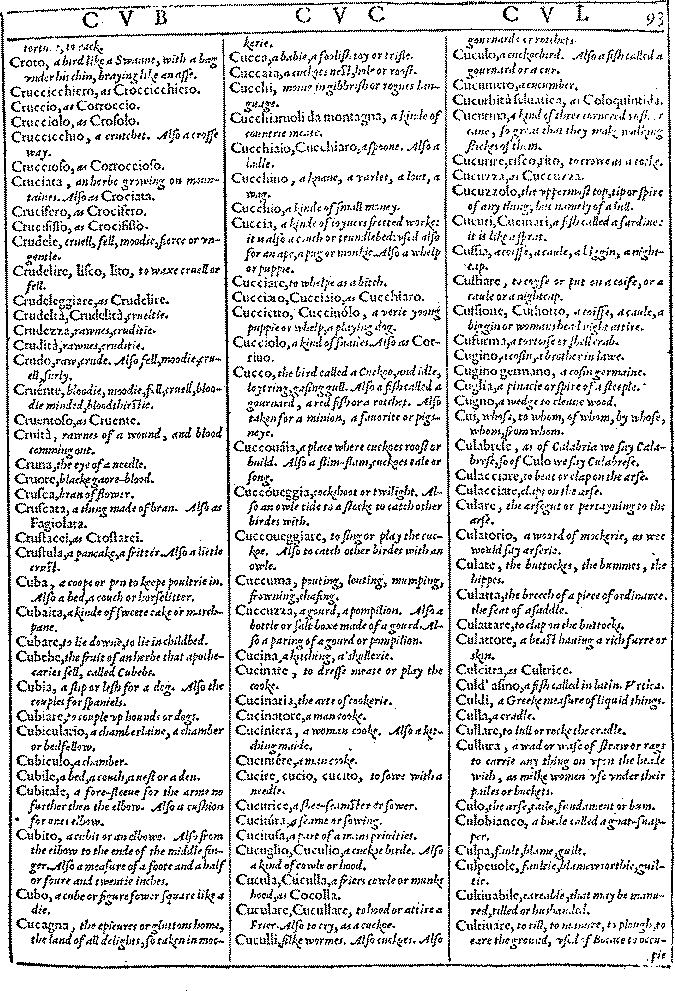 C V B
C V C
C V L
93
Croto, a bird like a Swanne, with a bag
vnder his chin, braying like an asse.
Cruccicchiero, as Croccicchiero.
Cruccio, as Corroccio.
Crucciolo, as Crosolo.
Crucicchio, a crutchet. Also a crosse
way.
Cruccioso, as Corroccioso.
Cruciata, an herbe growing on moun-
taines. Also as Crociata.
Crucifero, as Crocifero.
Crucifisso, as Crocifisso.
Crudele, cruell, fell, moodie, fierce or vn-
gentle.
Crudelire, lisco, lito, to waxe cruell or
fell.
Crudeleggiare, as Crudelire.
Crudeltà, Crudelità, crueltie.
Crudezza, rawnes, cruditie.
Crudità, rawnes, cruditie.
Crudo, raw, crude. Also fell, moodie, cru-
ell, surly.
Cruente, bloodie, moodie, fell, cruell, bloo-
die minded, bloodthirstie.
Cruentoso, as Cruente.
Cruità, rawnes of a wound, and blood
comming out.
Cruna, the eye of a needle.
Cruore, blacke gaore-blood.
Crusca, bran of flower.
Cruscata, a thing made of bran. Also as
Fagiolata.
Crustacei, as Crostacei.
Crustula, a pancake, a fritter. Also a little
crust.
Cuba, a coope or pen to keepe poultrie in.
Also a bed, a couch or horselitter.
Cubaita, a kinde of sweete cake or march-
pane.
Cubare, to lie downe, to lie in childbed.
Cubebe, the fruit of an herbe that apothe-
caries sell, called Cubebs.
Cubia, a slip or lesh for a dog. Also the
couples for spaniels.
Cubiare, to couple vp hounds or dogs.
Cubiculario, a chamberlaine, a chamber
or bedfellow.
Cubiculo, a chamber.
Cubile, a bed, a couch, a nest or a den.
Cubitale, a fore-sleeue for the arme no
further then the elbow. Also a cushion
for ones elbow.
Cubito, a cubit or an elbowe. Also from
the elbow to the ende of the middle fin-
ger. Also a measure of a foote and a half
or foure and twentie inches.
Cubo, a cube or figure fower square like a
die.
Cucagna, the epicures or gluttons home,
the land of all delights, so taken in moc-
kerie.
Cucca, a bable, a foolish toy or trifle.
Cuccaia, a cuckoes nest, hole or roost.
Cucchi, mong in gibbrish or rogues lan-
guage.
Cucchiaruoli da montagna, a kinde of
countrie meate.
Cucchiaio, Cucchiaro, a spoone. Also a
ladle.
Cucchino, a knaue, a varlet, a lout, a
wag.
Cucchio, a kinde of small money.
Cuccia, a kinde of ioyners fretted worke:
it is also a couch or trundlebed: vsed also
for an ape, a pug or monkie. Also a whelp
or puppie.
Cucciare, to whelpe as a bitch.
Cucciaro, Cucciaio, as Cucchiaro.
Cuccietto, Cuccinólo, a verie young
puppie or whelp, a playing dog.
Cucciolo, a kind of snailes. Also as Cor-
tiuo.
Cucco, the bird called a Cuckoo, and idle,
loytring, gasing gull. Also a fish called a
gournard, a red fish or a rotchet. Also
taken for a minion, a fauorite or pigs-
neye.
Cuccouáia, a place where cuckoes roost or
build. Also a flim-flam, cuckoes tale or
song.
Cuccoueggia, cockshoot or twilight. Al-
so an owle tide to a stocke to catch other
birdes with.
Cuccoueggiare, to sing or play the cuc-
koe. Also to catch other birdes with an
owle.
Cuccuma, pouting, louting, mumping,
frowning, chafing.
Cuccuzza, a gourd, a pompilion. Also a
bottle or salt boxe made of a gourd. Al-
so a paring of a gourd or pompilion.
Cucina, a kitching, a skullerie.
Cucinare, to dresse meate or play the
cooke.
Cucinaria, the arte of cookerie.
Cucinatore, a man cooke.
Cuciniera, a woman cooke. Also a kit-
ching maide.
Cuciniére, a man cooke.
Cucire, cucio, cucito, to sowe with a
needle.
Cucitrice, a shee-seamster or sower.
Cucitura, a seame or sowing.
Cucitusa, a part of a mans priuities.
Cucuglio, Cuculio, a cuckoe birde. Also
a kind of cowle or hood.
Cucula, Cuculla, a friers cowle or munks
hood, as Cocolla.
Cuculare, Cucullare, to hood or attire a
Frier. Also to cry, as a cuckoe.
Cuculli, silke wormes. Also cuckoes. Also
gournards or rotchets.
Cuculo, a cuckoe bird. Also a fish called a
gournard or a cur.
Cucumero, a cucumber.
Cucurbita siluatica, as Coloquintida.
Cucurre, risco, rito, to crowe as a cocke.
Cucuzza, as Cuccuzza.
Cucuzzolo, the vppermost top, tip or spire
of any thing, but namely of a hill.
it is like a sprat.
Cuffia, a coiffe, a caule, a biggin, a night-
cap.
Cuffiare, to coyfe or put on a coife, or a
caule or a nightcap.
Cuffione, Cuffiotto, a coiffe, a caule, a
biggin or womans head night attire.
Cufurma, a tortoise or shell crab.
Cugino, a cosin, a brother in lawe.
Cugino germano, a cosin germaine.
Cuglia, a pinacle or spire of a steeple.
Cugno, a wedge to cleaue wood.
Cui, whose, to whom, of whom, by whose,
whom, from whom.
Culabrese, as of Calabria we say Cala-
brese, so of Culo we say Culabrese.
Culacciare, to beat or clap on the arse.
Culacciate, claps on the arse.
Culare, the arsegut or pertayning to the
arse.
Culatorio, a woord of mockerie, as wee
would say arseria.
Culate, the buttockes, the bummes, the
hippes.
Culatta, the breech of a piece of ordinance,
the seat of a saddle.
Culattare, to clap on the buttocks.
Culattore, a beast hauing a rich furre or
skin.
Culcitra, as Cultrice.
Culd'asino, a fish called in latin. Vrtica.
Culdi, a Greeke measure of liquid things.
Culla, a cradle.
Cullare, to lull or rocke the cradle.
Cullura, a wad or wase of straw or rags
to carrie any thing on vpon the heade
with, as milke women vse vnder their
pailes or buckets.
Culo, the arse, taile, fundament or bum.
Culobianco, a birde called a gnat-snap-
per.
Culpa, fault, blame, guilt.
Culpeuole, faultie, blameworthie, guil-
tie.
Cultiuabile, eareable, that may be manu-
red, tilled or husbanded.
Cultiuare, to till, to manure, to plough, to
eare the ground, vsed of Bocace to occu-
pie